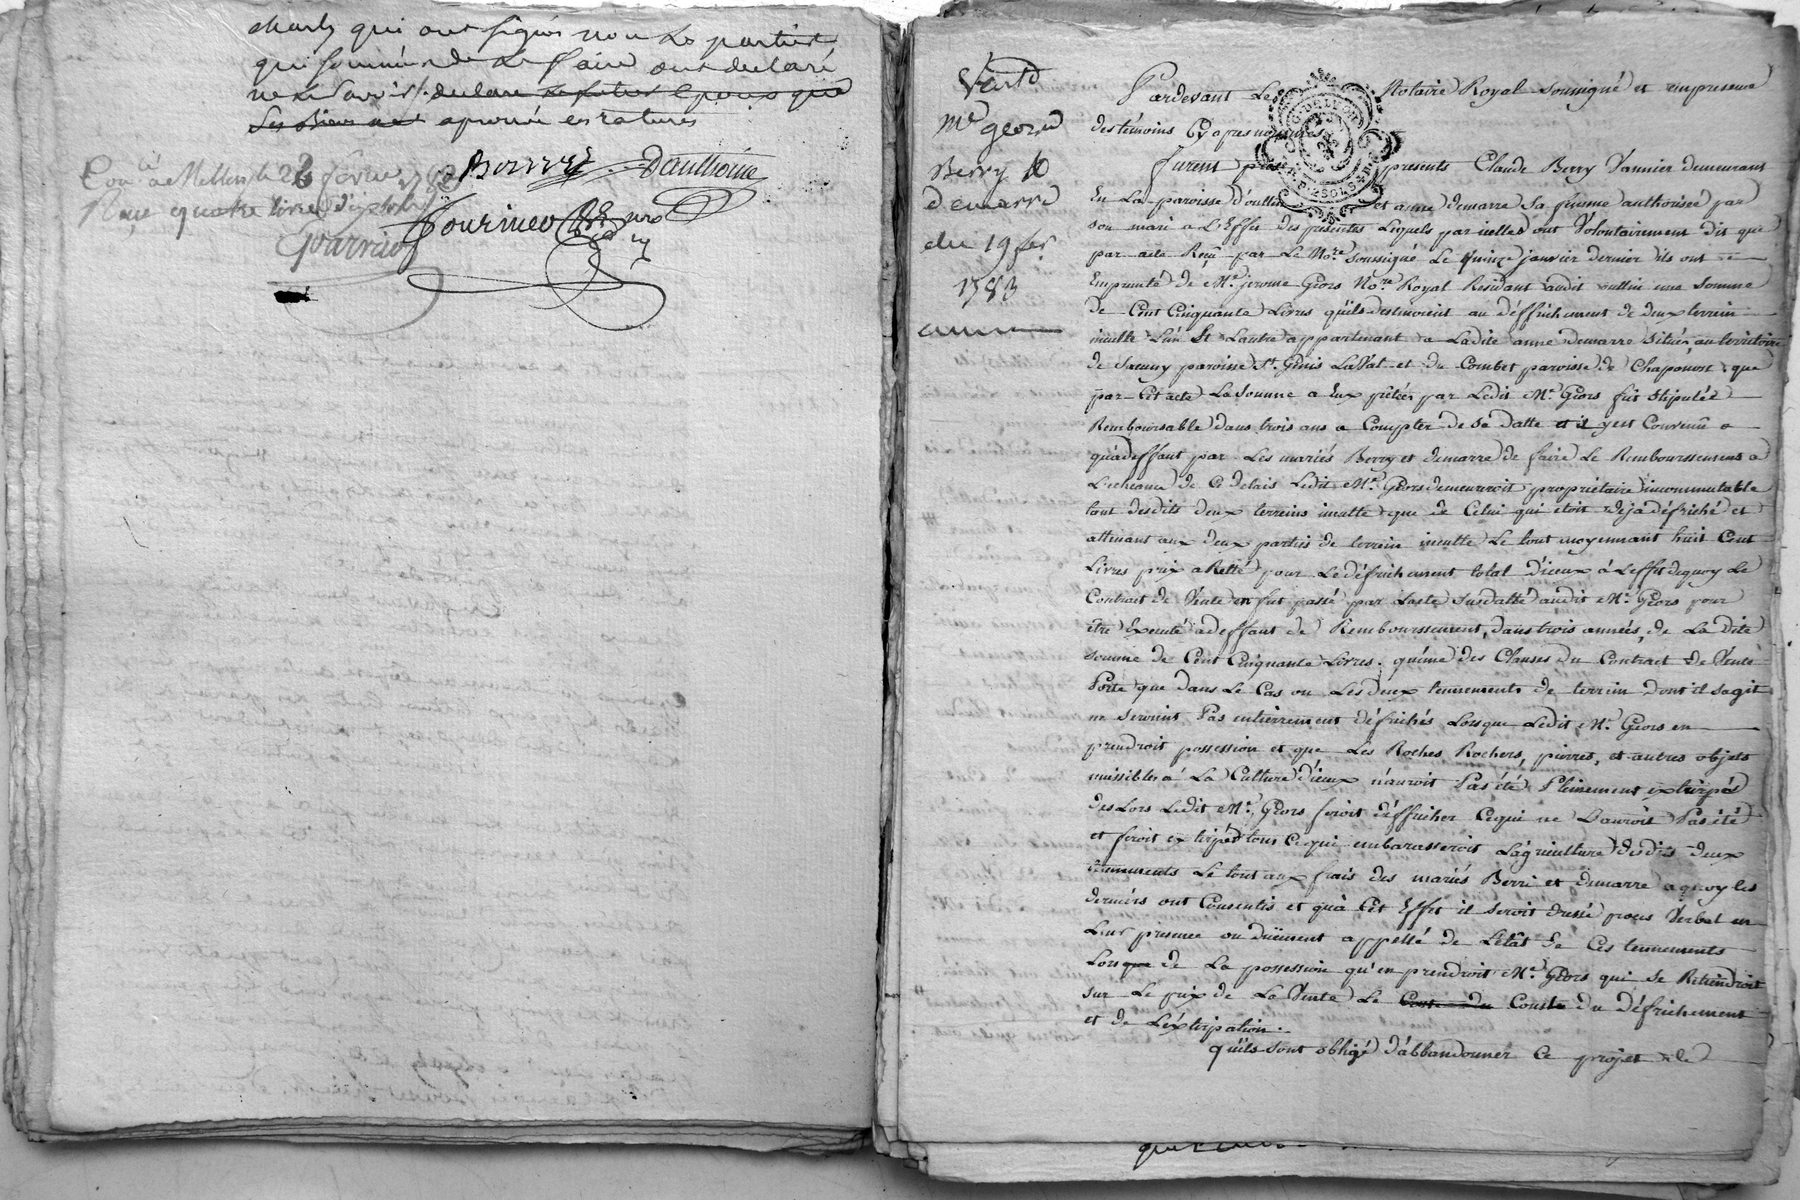 charly qui ont signés non les parties
qui sommées de le faire ont declaré
ne le savoir declare le futur Epoux que
ses Biens aprouvé es ratures
Borry Dauthoine
Con.lé a le 23 février 1783
Reçu quatre livres dix sols
Fournier No.re Royal
Fournier
Vente
Me georis
Berry &
demarre
du 19 fev.
1783
Pardevant Les Notaire Royal soussigné et empresence
des témoins Cy apres nommés
furent presents Claude Berry Vannier demeurant
En La paroisse d'oullin et anne demarre Sa femme authorisée par
son mari a L'Effet des presentes Lequels par icelles ont Volontairement dit que
par acte Reçu par Le No.re soussigné Le quinze janvier dernier ils ont
Emprunté de Me. jerome Geors No.re Royal Residant audit oullin une somme
de Cent Cinquante Livres qu'ils destinoient au défrichement de deux terrein
inculte L'un Et Lautre appartenant a Ladite anne demarre Situés au territoire
de Sacuny paroisse St. Genis LaVal et du Combet paroisse de Chaponost, que
par Cet acte La somme a Eux prêtée par Ledit Me. Geors fut stipulée
Remboursable dans trois ans a Compter de Sa datte et il y est Convenû
qu'a deffaut par Les mariés Berry et demarre de faire Le Remboursement a
L'echeance de Ce delais Ledit Me. Geors demeureroit propriétaire incommutable
tant desdits deux terreins inculte que de Celui qui étoit dejà défriché et
attenant aux deux parties de terrein inculte Le tout moyennant huit Cent
Livres prix aRetté pour Le défrichement total d'iceux à L'effet de quoy Le
Contract de Vente en fut passé par Lacte Susdatté audit Me. Geors pour
être Executé a deffaut de Remboursement, dans trois années, de La dite
somme de Cent Cinquante Livres. qu'une des Clauses du Contract de Vente
Porte que dans Le Cas ou Les deux tennements de terrein dont il sagit
ne seroint Pas entierrement défrichés Lorsque Ledit Me. Geors en
prendroit possession et que Les Roches Rochers, pierres, et autres objets
nuissibles à La Culture d'iceux n'auroit Pas été Pleinement extirpés
des Lors Ledit Me. Geors feroit défficher Ce qui ne L'auroit Pas été
et feroit extirper tous Ce qui embarasseroit L'agriculture desdits deux
tennements Le tout aux frais des mariés Berri et demarre a quoy les
derniers ont Consentis et qu'à Cet Effet il seroit dressé procès Verbal en
Leur presence ou dûement appellé de L'état de Ces tennements
Lorsque de La possession qu'en prendroit Me. Geors qui se Retiendroit
sur Le prix de La Vente Le Coste du Couste du défrichement
et de L'extirpation.
qu'ils sont obligé d'abbandonner Ce projet de